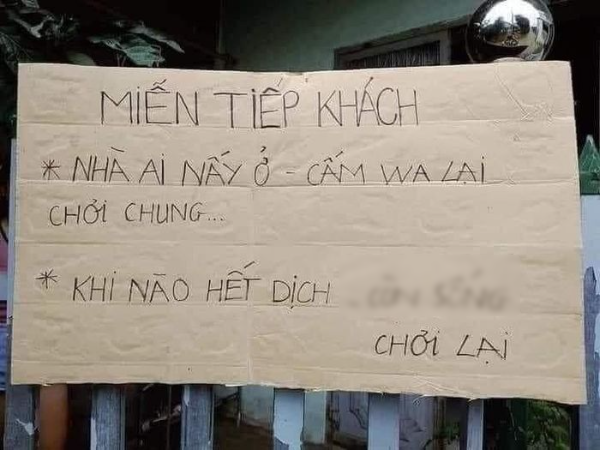 MIỄN TIẾP KHÁCH
* NHÀ AI NẤY Ở - CẤM WA LẠI
CHỞI CHUNG...
* KHI NÀO HẾT DỊCH
CHỞI LẠI